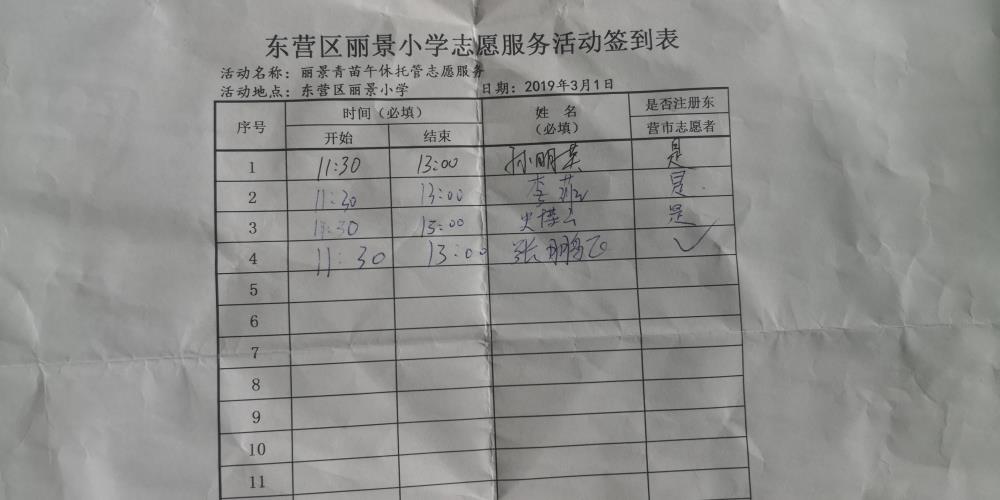 东营区丽景小学志愿服务活动签到表
活动名称：丽景青苗午休托管志愿服务
活动地点：东营区丽景小学 日期：2019年3月1日
序号 时间（必填） 姓名（必填） 是否注册东营市志愿者
开始 结束
1 11:30 13:00 孙明英 是
2 11:30 13:00 李菲 是.
3 11:30 13:00 是
4 11:30 13:00 张鹏飞 ✓
5
6
7
8
9
10
11